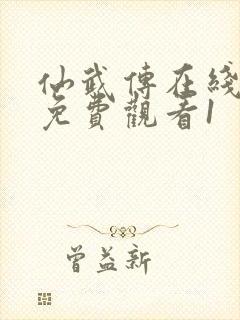 仙武傳在綫
免費觀看1
曾益新